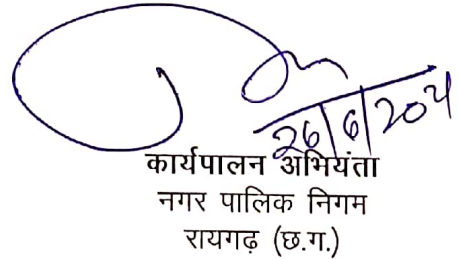 26/6/2024
कार्यपालन अभियंता
नगर पालिक निगम
रायगढ़ (छ.ग.)